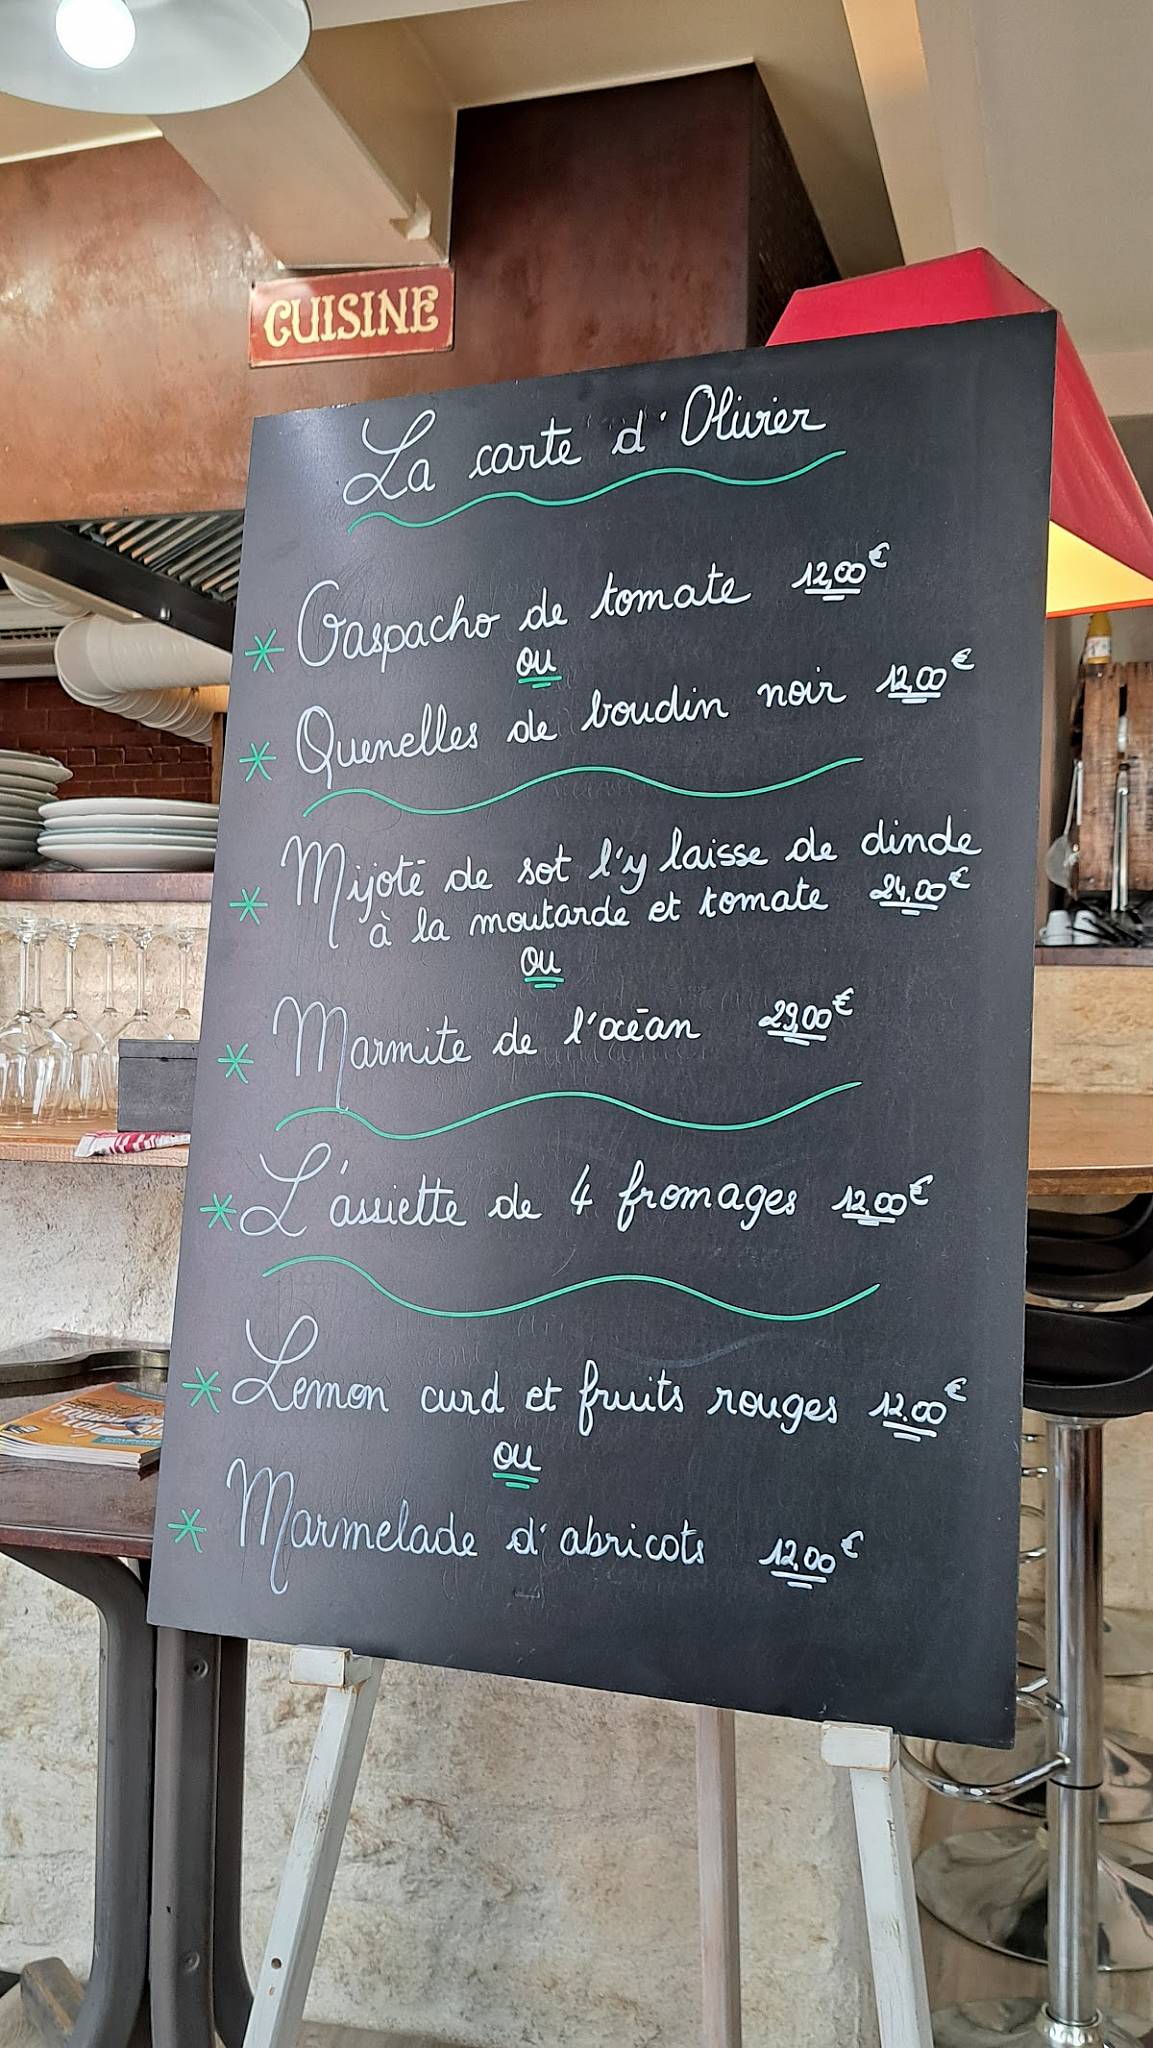 CUISINE
La carte d'Olivier
* Gaspacho de tomate 12,00€
ou
* Quenelles de boudin noir 12,00€
* Mijoté de sot l'y laisse de dinde
à la moutarde et tomate 24,00€
ou
* Marmite de l'océan 29,00€
* L'assiette de 4 fromages 12,00€
* Lemon curd et fruits rouges 12.00€
ou
* Marmelade d'abricots 12.00€